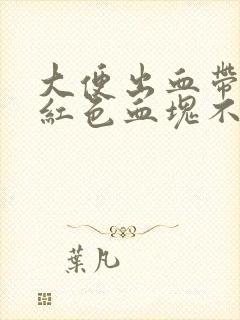 大便出血帶
紅色血塊不
葉凡